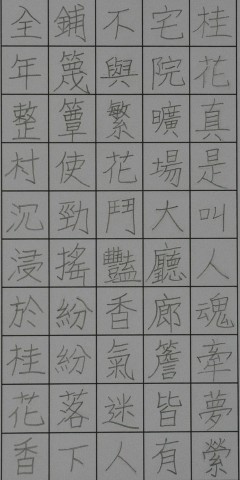 桂花真是叫人魂牽夢縈
宅院曠場大廳廊簷皆有
不與繁花鬥豔香氣迷人
鋪篾簟使勁搖紛紛落下
全年整村沉浸於桂花香